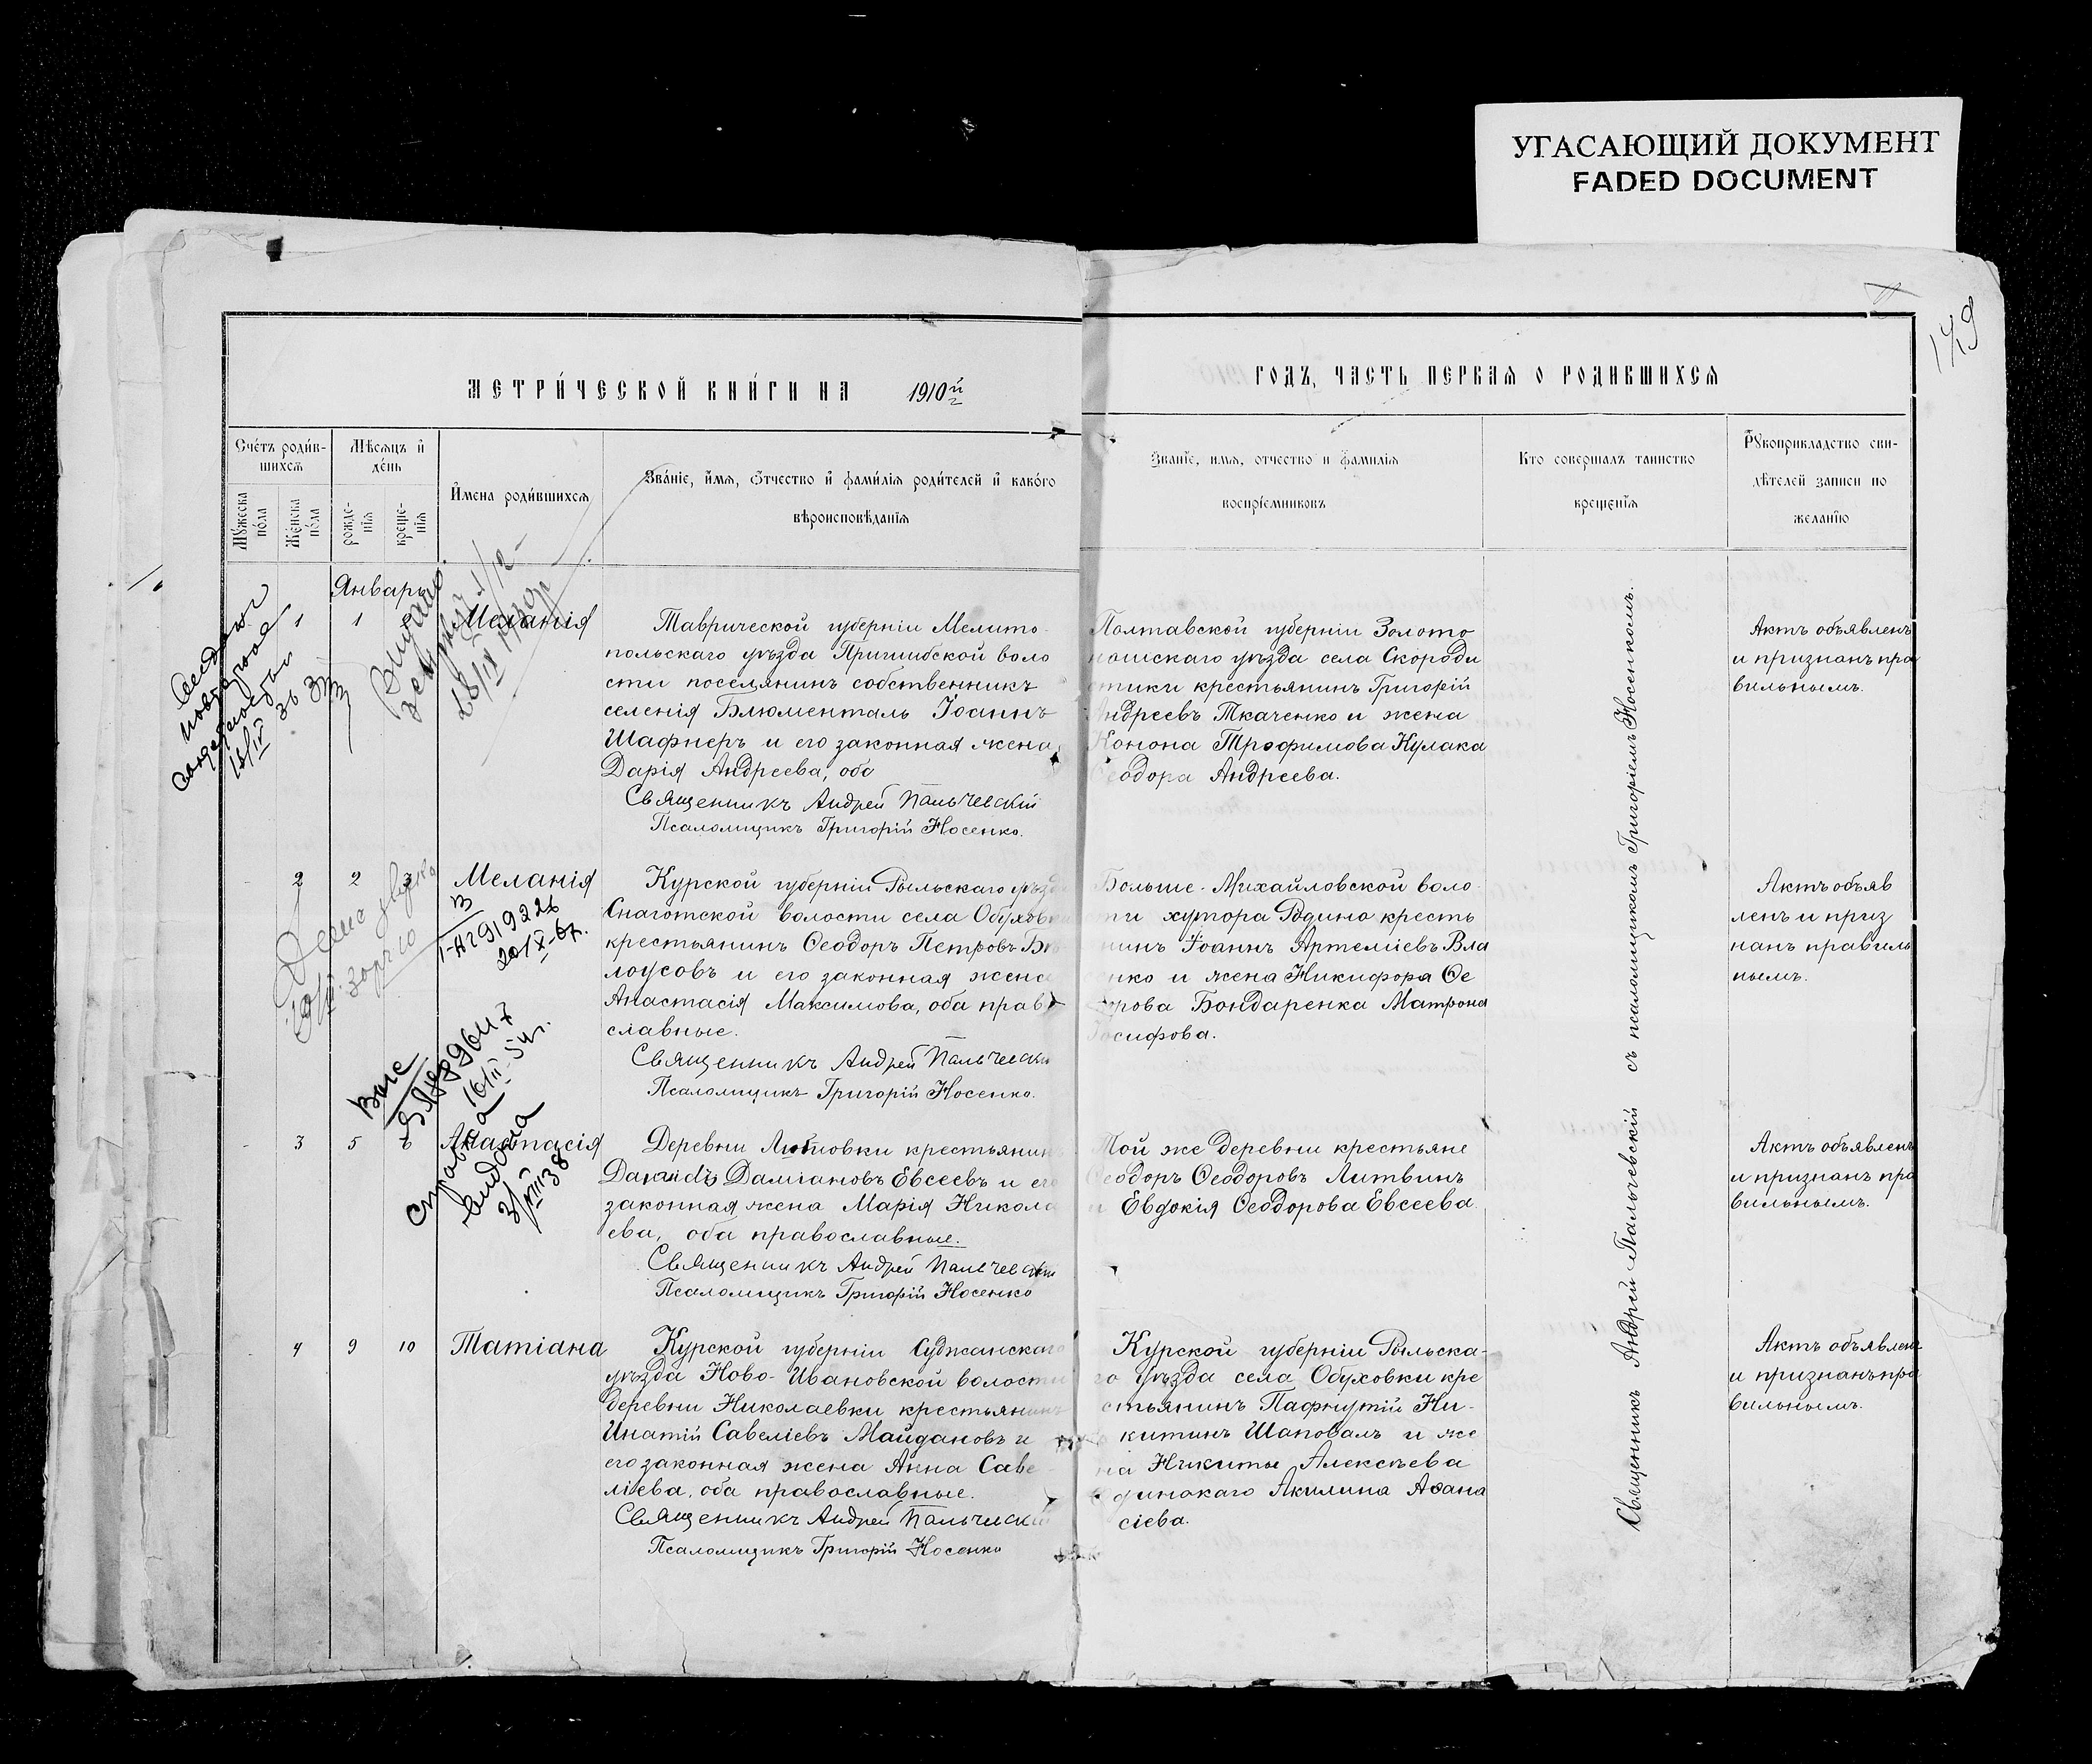 УГАСАЮЩИЙ ДОКУМЕНТ
FADED DOCUMENT
149
МЕТРИ́ЧЕСКОЙ КНИ́ГИ НА 1910й г
ГОДЪ, ЧАСТЬ ПЕРВАЯ О РОДИВШИХСЯ
Счётъ роди́в-
шихся
Мѣсяцъ и
де́нь
Му́жеска
по́ла
Же́нска
по́ла
рожде-
нія
креще-
нія
Имена роди́вшихся
Зва́ніе, и́мя, о́тчество и фами́лія роди́телей и како́го
вѣроисповѣ́данія
Званіе, имя, отчество и фамилія
воспріемниковъ
Кто совершалъ таинство
крещенія
Рукоприкладство сви-
дѣтелей записи по
желанію
Январь
1 1
Меланія
Таврической губерніи Мелито
польскаго уѣзда Пришибской воло
сти поселянинъ собственникъ
селенія Блюменталь Іоаннъ
Шафнеръ и его законная жена
Дарія Андреева, оба
Священникъ Андрей Пальчевскій
Псаломщикъ Григорій Носенко.
Полтавской губерніи Золото
ношскаго уѣзда села Скороди
стики крестьянинъ Григорій
Андреевъ Ткаченко и жена
Конона Трофимова Кулака
Ѳеодора Андреева.
Актъ объявленъ
и признанъ пра
вильнымъ.
28/IV 1939г
18/IV 36
2 2 3
Меланія
Курской губерніи Рыльскаго уѣзда
Снаготской волости села Обуховки
крестьянинъ Ѳеодоръ Петровъ Бѣ
лоусовъ и его законная жена
Анастасія Максимова, оба право
славные.
Священникъ Андрей Пальчевскій
Псаломщикъ Григорій Носенко.
Больше-Михайловской воло
сти хутора Родино кресть
нинъ Іоаннъ Артеміевъ Вла
нко и жена Никифора Ѳе
дорова Бондаренка Матрона
Іосифова.
Актъ объяв
ленъ и приз
нанъ правиль
нымъ.
20/X-67.
16/II-54г.
3 5 6
Анастасія
Деревни Любовки крестьянинъ
Давидъ Даміановъ Евсеевъ и его
законная жена Марія Никола
ева, оба православные.
Священникъ Андрей Пальчевскій
Псаломщикъ Григорій Носенко
Той же деревни крестьяне
Ѳеодоръ Ѳеодоровъ Литвинъ
и Евдокія Ѳеодорова Евсеева.
Актъ объявленъ
и признанъ пра
вильнымъ.
Справка
выдана
3/VIII 38
4 9 10
Татіана
Курской губерніи Суджанскаго
уѣзда Ново-Ивановской волости
деревни Николаевки крестьянинъ
Инатій Савеліевъ Майдановъ и
его законная жена Анна Саве
ліева, оба православные.
Священникъ Андрей Пальчевскій
Псаломщикъ Григорій Носенко
Курской губерніи Рыльска-
го уѣзда села Обуховки кре
стьянинъ Пафнутій Ни-
китинъ Шаповалъ и же
на Никиты Алексѣева
Одинокаго Акилина Аѳана
сіева.
Актъ объявленъ
и признанъ пра
вильнымъ.
Священникъ Андрей Пальчевскій съ псаломщикомъ Григоріемъ Носенкомъ.